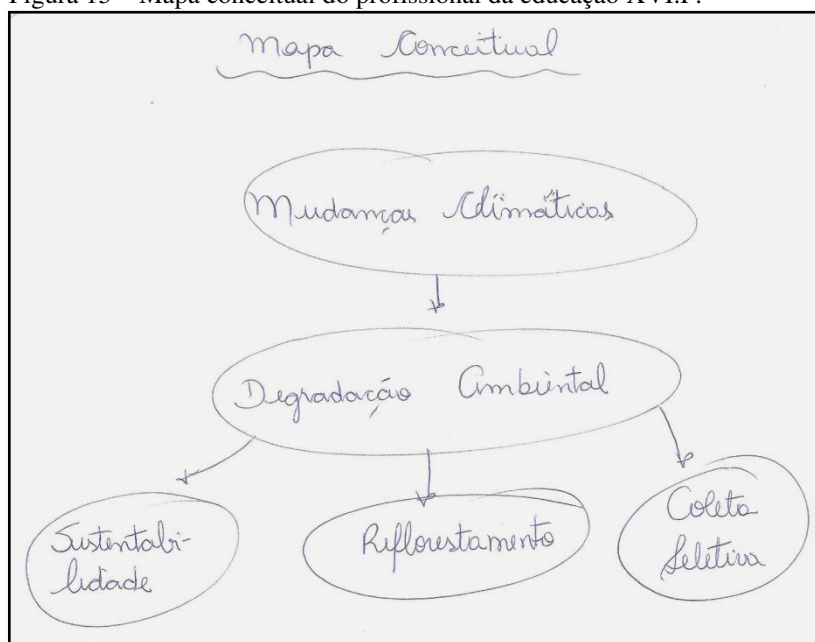 Figura 15 – Mapa conceitual do profissional da educação XVI.P.
Mapa Conceitual
Mudanças Climáticas
Degradação Ambiental
Sustentabi-
lidade
Reflorestamento
Coleta
Seletiva